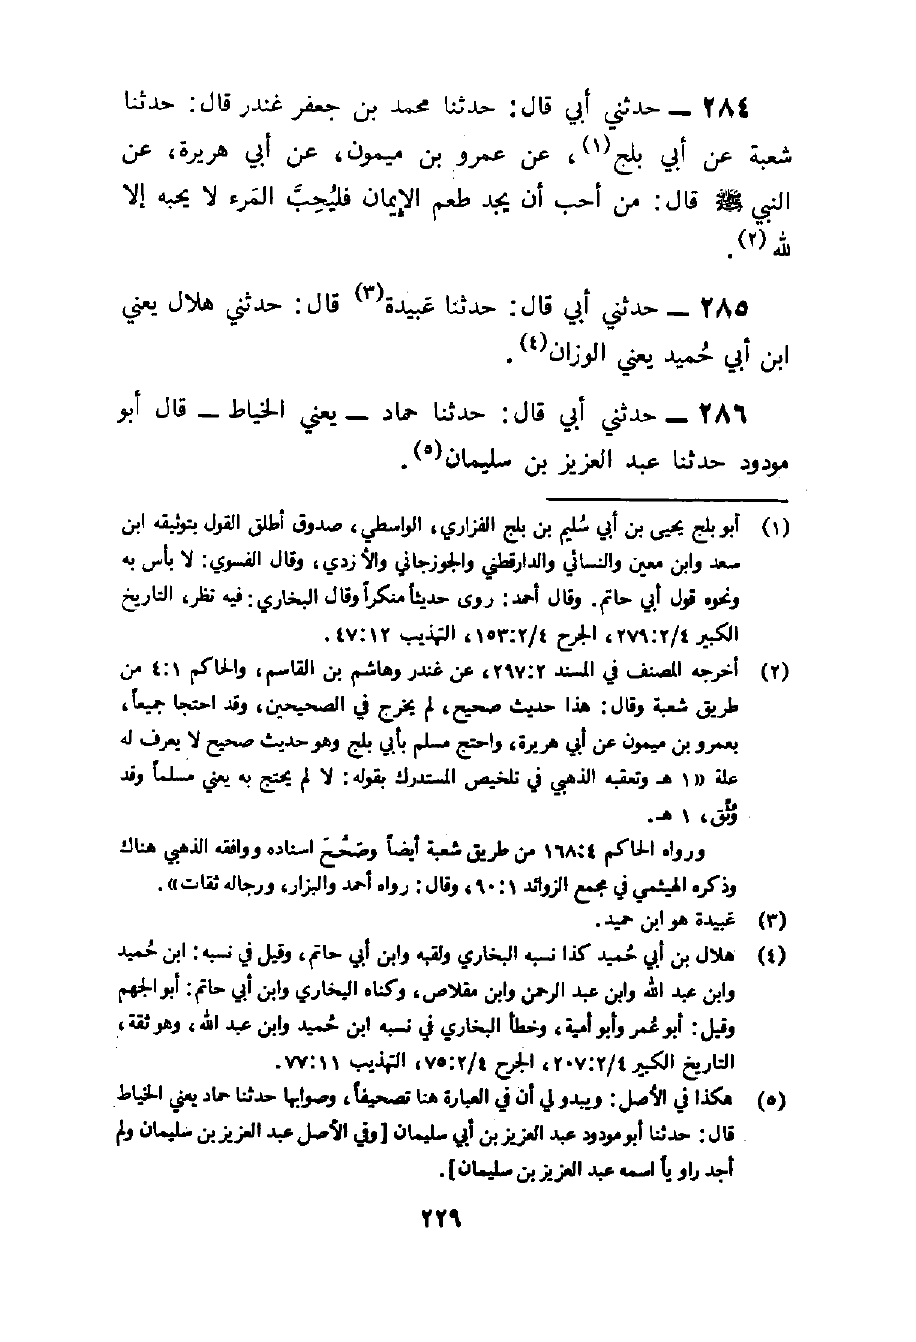 ٢٨٤ ــ حدثني أبي قال: حدثنا محمد بن جعفر غندر قال: حدثنا
شعبة عن أبي بلج(١)، عن عمرو بن ميمون، عن أبي هريرة، عن
النبي ﷺ قال: من أحب أن يجد طعم الإيمان فليُحِبَّ المَرء لا يحبه إلا
لله (٢).
٢٨٥ ــ حدثني أبي قال: حدثنا عَبيدة(٣) قال: حدثني هلال يعني
ابن أبي حُميد يعني الوزان(٤).
٢٨٦ ــ حدثني أبي قال: حدثنا حماد ــ يعني الخياط ــ قال أبو
مودود حدثنا عبد العزيز بن سليمان(٥).
(١) أبو بلج يحيى بن أبي سُليم بن بلج الفزاري، الواسطي، صدوق أطلق القول بتوثيقه ابن
سعد وابن معين والنسائي والدارقطني والجوزجاني والأزدي، وقال الفسوي: لا بأس به
ونحوه قول أبي حاتم. وقال أحمد: روى حديثاً منكراً وقال البخاري: فيه نظر، التاريخ
الكبير ٢٧٩:٢/٤، الجرح ١٥٣:٢/٤، التهذيب ٤٧:١٢.
(٢) أخرجه المصنف في المسند ٢٩٧:٢، عن غندر وهاشم بن القاسم، والحاكم ٤:١ من
طريق شعبة وقال: هذا حديث صحيح، لم يخرج في الصحيحين، وقد احتجا جميعاً،
بعمرو بن ميمون عن أبي هريرة، واحتج مسلم بأبي بلج وهو حديث صحيح لا يعرف له
علة «١ هـ وتعقبه الذهبي في تلخيص المستدرك بقوله: لا لم يحتج به يعني مسلماً وقد
وُثِّق، ١ هـ.
ورواه الحاكم ١٦٨:٤ من طريق شعبة أيضاً وصَحَّحَ اسناده ووافقه الذهبي هناك
وذكره الهيثمي في مجمع الزوائد ٩٠:١، وقال: رواه أحمد والبزار، ورجاله ثقات».
(٣) عَبيدة هو ابن حميد.
(٤) هلال بن أبي حُميد كذا نسبه البخاري ولقبه وابن أبي حاتم، وقيل في نسبه: ابن حُميد
وابن عبد الله وابن عبد الرحمن وابن مقلاص، وكناه البخاري وابن أبي حاتم: أبو الجهم
وقيل: أبو عُمر وأبو أمية، وخطأ البخاري في نسبه ابن حُميد وابن عبد الله، وهو ثقة،
التاريخ الكبير ٢٠٧:٢/٤، الجرح ٧٥:٢/٤، التهذيب ٧٧:١١.
(٥) هكذا في الأصل: ويبدو لي أن في العبارة هنا تصحيفاً، وصوابها حدثنا حماد يعني الخياط
قال: حدثنا أبو مودود عبد العزيز بن أبي سليمان [وفي الأصل عبد العزيز بن سليمان ولم
أجد راوياً اسمه عبد العزيز بن سليمان].
٢٢٩